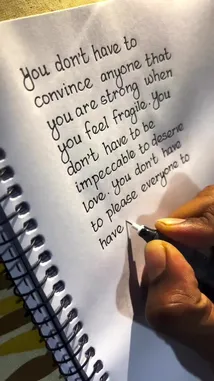 You don't have to
convince anyone that
you are strong when
you feel fragile. You
don't have to be
impeccable to deserve
love. You don't have
to please everyone to
have